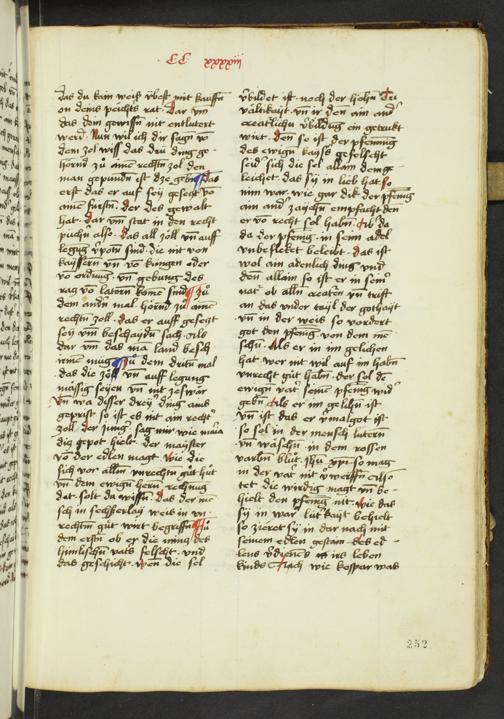 CC xxxxiij
das du kain weis vbest mit kauffn
on deins peichts rat. dar vm
das dein gewissn nit entlutert
werd. Nun wil ich dir sagn vo
dem zol wiss das drü ding ge-
hörnd zů ainē rechtn zol den
man gepundn ist dze gebn das
erst das er auf sey gesecz vō
ainē fürstn. der des gewalt
hat. dar vm stat in den recht
půchn also. das all zöll vn̄ auff
legūg vpotn sind die nit von
kayssern vn̄ vō küngen oder
vō ordnūg vn̄ gebung des
rag vō latorn komē sind zů
dem andn̄ mal hörnd zů ainē
rechtn zoll. das er auff gesegt
sey vm̄ beschaydn̄ sach. als
dar vm̄ das ma land besch
irmē mug zů dem dritn̄ mal
das die zöll vn̄ auff legung
mässig seyen vn̄ nit zeswär
Vn̄ wa disser dreÿ ding ains
geprist so ist es nit ain recht̄
zoll. der jung sag mir wie
dig gepot hielt der maÿster
vō der edlen magt wie die
sich vor alln̄ vnrechtn̄ gůt hüt
vn̄ dem ewign̄ hern̄ rechnūg
dat. solt da wissn̄. das der mē
sch in sechserlaÿ weis in vn
rechtm̄ gůt wirt begriffn̄ zů
dem ersn̄ ob er die müng des
himlischn̄ vats felscht. vnd
das geschicht. wen die sel
vbildet ist. noch der hohn̄ dri
valtikaÿt. vn̄ ir den ain and
creatlichn̄ vbildūg ein getrukt
wirt. den so ist der pfenning
des ewign̄ kayss gefelscht
seid sich die sel allain dem ge
leichet. das sÿ in lieb hat. so
nim war. wie gar dik der pfenīg
ain and̄ zaychn̄ empfacht den
er vō recht sol habn̄. ob da
da der pfenīg in seinn adel
vnbeflecket beleibt. das ist
wol ain adenlich ding. vnd
den allain so ist er in seim
vat̄ ob alln̄ creatn̄ vn̄ trift
an das vnder tayl der gothayt
vn̄ in der weis so vordert
got den pfenīg von dem me
schn̄. Als er im gelichen
hat wer nit wil auf im habn̄
vnrecht gůt habn̄. der sol de
ewign̄ vat̄ seinē pfenīg wid
gebn̄ als er im gelihn̄ ist
vn̄ ist das er vmalgot ist
so sol in der mensch lutern
vn̄ wäschn̄ in dem rossen
varbn̄ blůt jhū xpi. so mag
in der vat̄ nit vwerffn̄. also
tet die wirdig magt vn̄ be-
hielt den pfenīg nit. wie das
sÿ in war lutkaÿt behielt
so zieret sÿ in dar nach mit
seinem edlen gestain des ed-
lens vdienes irs leben
kinds. Nach wie kospar was
252